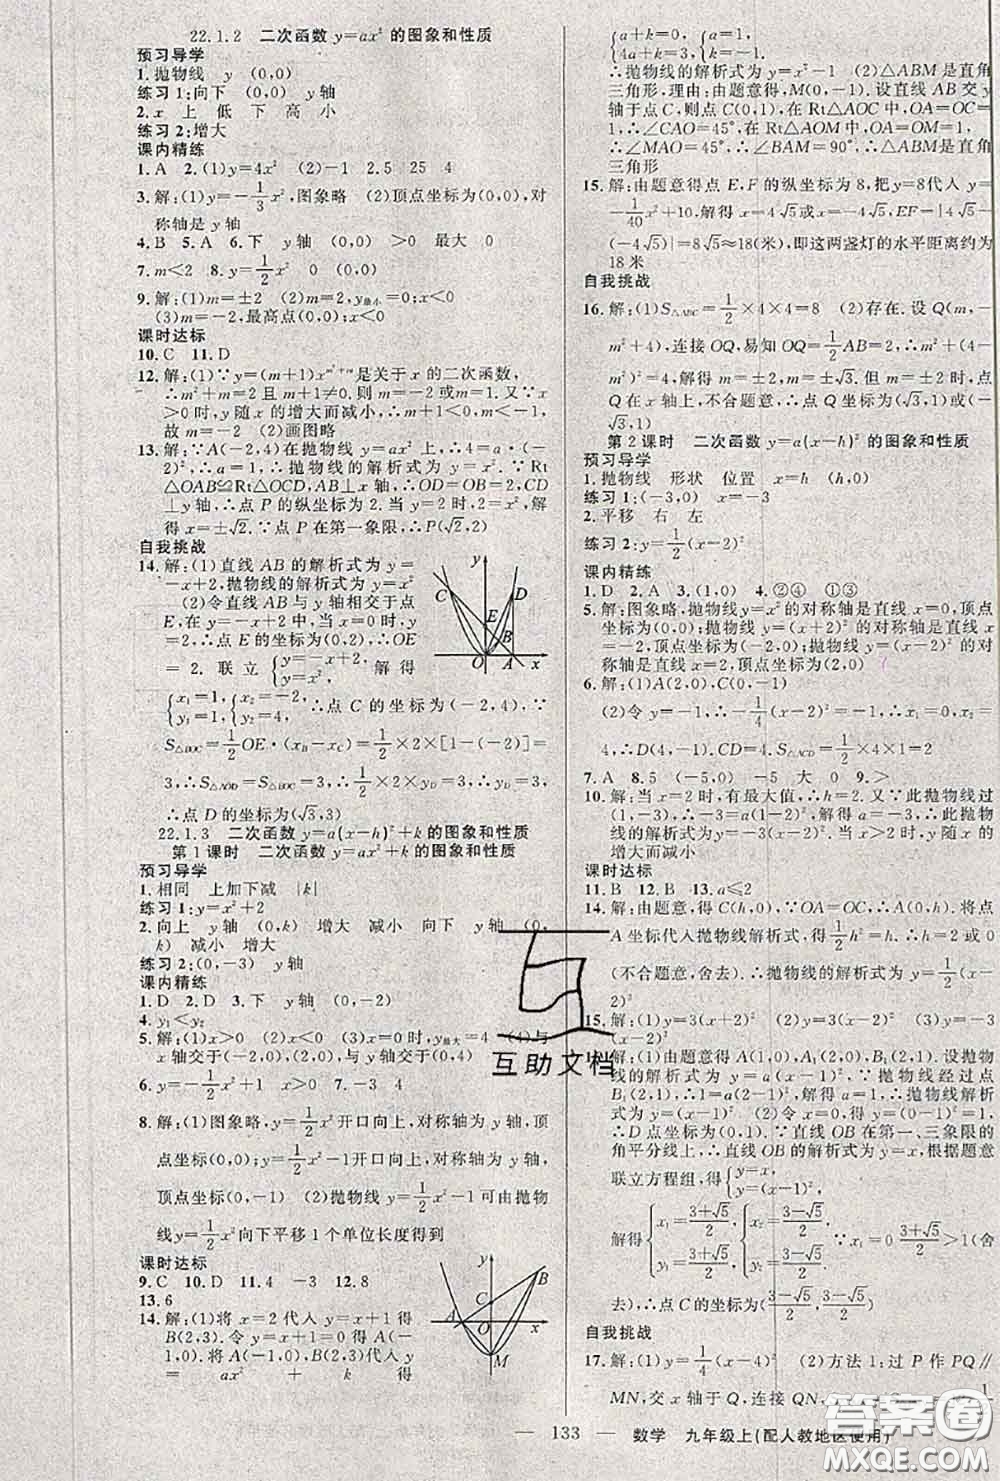 22.1.2 二次函数 y=ax² 的图象和性质
预习导学
1. 抛物线 y (0,0)
练习 1:向下 (0,0) y 轴
2. x 上 低 下 高 小
练习 2:增大
课内精练
1. A 2. (1)y=4x² (2)-1 2.5 25 4
3. 解:(1)y=-1/3x²,图象略 (2)顶点坐标为(0,0),对
称轴是 y 轴
4. B 5. A 6. 下 y轴 (0,0) >0 最大 0
7. m<2 8. y=1/2x² 0 (0,0)
9. 解:(1)m=-2 (2)m=1,y最小=0,x<0
(3)m=-2,最高点(0,0),x>0
课时达标
10. C 11. D
12. 解:(1)∵y=(m+1)x^(m²+m)是关于 x 的二次函数,
∴m²+m=2 且 m+1≠0,∴m=-2 或 m=1. ∵当 x
>0 时,y 随 x 的增大而减小,∴m+1<0,m<-1,
故 m=-2 (2)画图略
13. 解:∵A(-2,4)在抛物线 y=ax² 上,∴4=a·(-
2)²,∴a=1,∴抛物线的解析式为 y=x². ∵Rt
△OAB≌Rt△OCD,AB⊥x 轴,∴OD=OB=2,CD
⊥y 轴,∴点 P 的纵坐标为 2. 当 y=2 时,x²=2,解
得 x=±√2. ∵点 P 在第一象限,∴P(√2,2)
自我挑战
14. 解:(1)直线 AB 的解析式为 y=
-x+2,抛物线的解析式为 y=x²
(2)令直线 AB 与 y 轴相交于点
E,在 y=-x+2 中,当 x=0 时,y
=2,∴点 E 的坐标为(0,2),∴OE
=2. 联立{y=-x+2, y=x², 解得
{x₁=1, y₁=1, {x₂=-2, y₂=4, ∴点 C 的坐标为(-2,4),∵
S△BOC=1/2OE·(x_B-x_C)=1/2×2×[1-(-2)]=
3,∴S△AOD=S△BOC=3,∴1/2×2×y_D=3,∴y_D=3,
∴点 D 的坐标为(√3,3)
22.1.3 二次函数 y=a(x-h)²+k 的图象和性质
第 1 课时 二次函数 y=ax²+k 的图象和性质
预习导学
1. 相同 上加下减 |k|
练习 1:y=x²+2
2. 向上 y轴 (0,k) 增大 减小 向下 y轴 (0,
k) 减小 增大
练习 2:(0,-3) y轴
课内精练
1. D 2. D 3. 下 y轴 (0,-2)
4. y₁<y₂
5. 解:(1)x>0 (2)x<0 (3)x=0 时,y最大=4 (4)与
x 轴交于(-2,0),(2,0),与 y 轴交于(0,4)
6. y=-1/2x²+1 x>0 7. -3 4
8. 解:(1)图象略,y=1/2x² 开口向上,对称轴为 y 轴,顶
点坐标(0,0);y=1/2x²-1 开口向上,对称轴为 y 轴,
顶点坐标(0,-1) (2)抛物线 y=1/2x²-1 可由抛物
线 y=1/2x² 向下平移 1 个单位长度得到
课时达标
9. C 10. D 11. 4 -3 12. 8
13. 6
14. 解:(1)将 x=2 代入 y=x+1 得
B(2,3). 令 y=x+1=0 得 A(-
1,0). 将 A(-1,0),B(2,3)代入 y
= ax² + k 得
{a+k=0, 4a+k=3, 解得{a=1, k=-1.
∴抛物线的解析式为 y=x²-1 (2)△ABM 是直角
三角形. 理由:由题意得,M(0,-1). 设直线 AB 交 y
轴于点 C,则点 C(0,1),在 Rt△AOC 中,OA=OC=
1,∴∠CAO=45°,在 Rt△AOM 中,OA=OM=1,
∴∠MAO=45°,∴∠BAM=90°,∴△ABM 是直角
三角形
15. 解:由题意得点 E,F 的纵坐标为 8,把 y=8 代入 y=
-1/40x²+10,解得 x=4√5或 x=-4√5,EF=|4√5-
(-4√5)|=8√5≈18(米),即这两盏灯的水平距离约为
18 米
自我挑战
16. 解:(1)S△ABC=1/2×4×4=8 (2)存在. 设 Q(m,-
m²+4),连接 OQ,易知 OQ=1/2AB=2,∴m²+(4-
m²)²=4,解得 m=±2 或±√3. 但当 m=±2 时,点
Q 在 x 轴上,不合题意,∴点 Q 坐标为(√3,1)或(-
√3,1)
第 2 课时 二次函数 y=a(x-h)² 的图象和性质
预习导学
1. 抛物线 形状 位置 x=h (h,0)
练习 1:(-3,0) x=-3
2. 平移 右 左
练习 2:y=1/2(x-2)²
课内精练
1. D 2. A 3. (1,0) 4. ②④ ①③
5. 解:图象略,抛物线 y=x² 的对称轴是直线 x=0,顶点
坐标为(0,0);抛物线 y=(x+2)² 的对称轴是直线 x
=-2,顶点坐标为(-2,0);抛物线 y=(x-2)² 的对
称轴是直线 x=2,顶点坐标为(2,0)
6. 解:(1)A(2,0),C(0,-1)
(2)令 y=-1,∴-1/4(x-2)²=-1,∴x₁=0,x₂=
4,∴D(4,-1). CD=4. ∴S△ACD=1/2×4×1=2
7. A 8. 5 (-5,0) -5 大 0 9. >
10. 解:当 x=2 时,有最大值,∴h=2. 又∵此抛物线过
(1,-3),∴-3=a(1-2)²,解得 a=-3,∴此抛物
线的解析式为 y=-3(x-2)². 当 x>2 时,y 随 x 的
增大而减小
课时达标
11. B 12. B 13. a≤2
14. 解:由题意,得 C(h,0),∵OA=OC,∴A(0,h). 将点
A 坐标代入抛物线解析式,得1/2h²=h,∴h=2 或 0
(不合题意,舍去). ∴抛物线的解析式为 y=1/2(x-
2)²
15. 解:(1)y=3(x+2)² (2)y=3(x-2)² (3)y=-3(x
解:(1)由题意得 A(1,0),A₁(2,0),B₁(2,1). 设抛物
线的解析式为 y=a(x-1)²,∵抛物线经过点
B₁(2,1),∴1=a(2-1)²,解得 a=1,∴抛物线解析
式为 y=(x-1)² (2)令 x=0,y=(0-1)²=1,
∴D 点坐标为(0,1). ∵直线 OB 在第一、三象限的
角平分线上,∴直线 OB 的解析式为 y=x. 根据题意
联立方程组,得{y=x, y=(x-1)²,
解得{x₁=(3+√5)/2, y₁=(3+√5)/2, {x₂=(3-√5)/2, y₂=(3-√5)/2. ∵x₁=(3+√5)/2>1(舍
去),∴点 C 的坐标为((3-√5)/2,(3-√5)/2)
自我挑战
17. 解:(1)y=1/4(x-4)² (2)方法 1:过 P 作 PQ∥
MN,交 x 轴于 Q,连接 QN,
— 133 — 数学 九年级上(配人教地区使用)
互助文档
答案圈